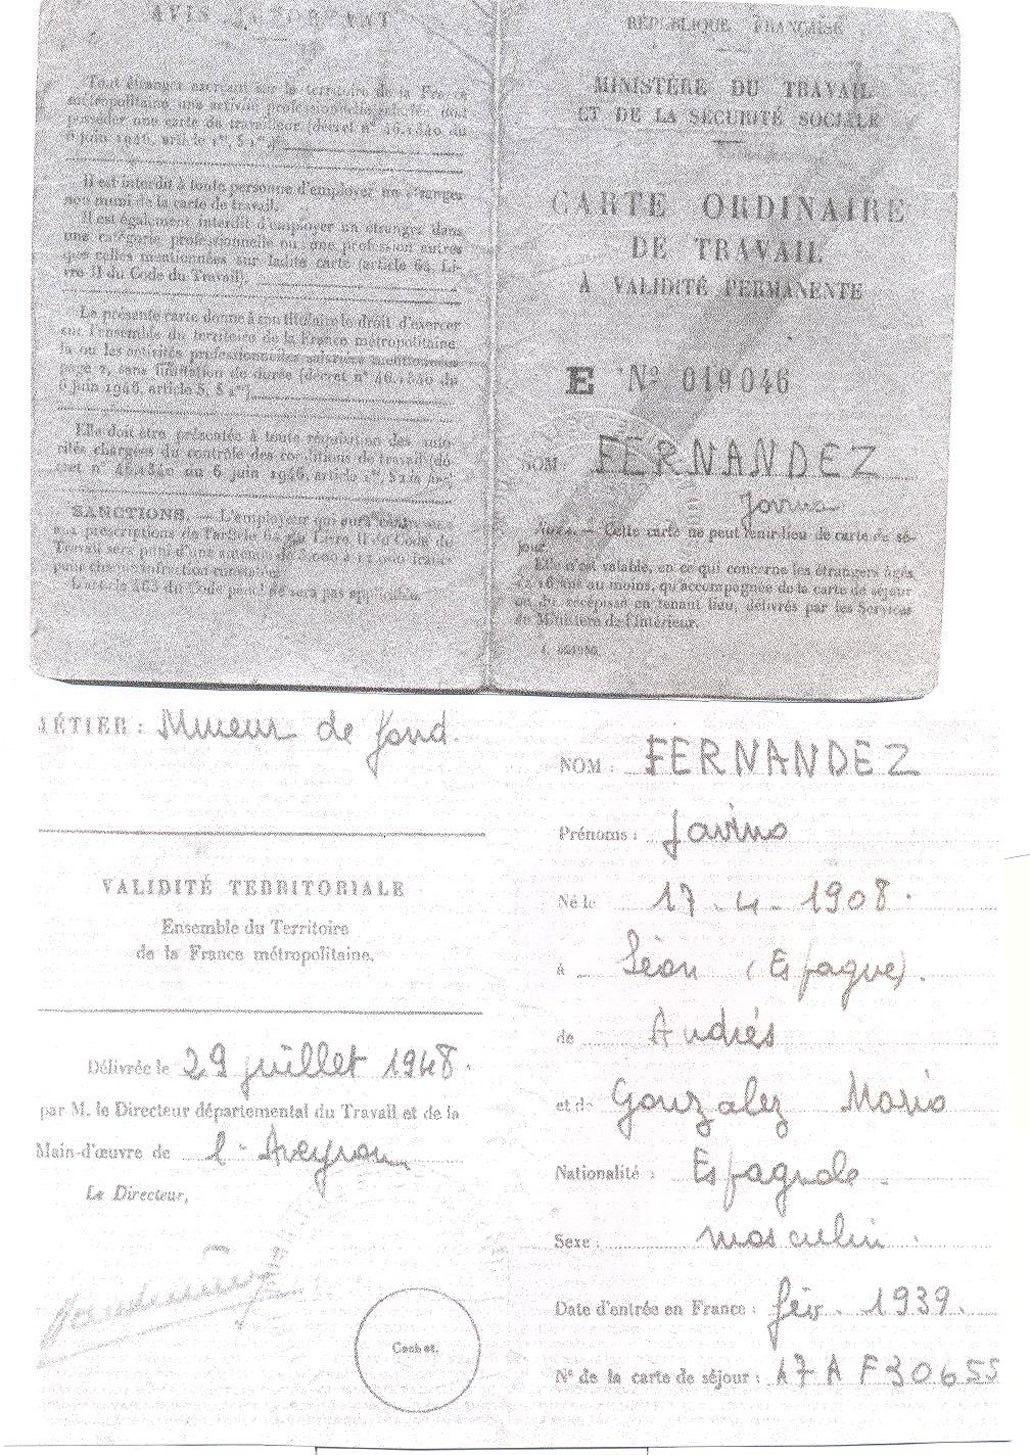 AVIS IMPORTANT
Tout étranger exerçant sur le territoire de la France
métropolitaine une activité professionnelle salariée doit
posséder une carte de travailleur (décret n° 46.1340 du
6 juin 1946, article 1er, § 1er).
Il est interdit à toute personne d'employer un étranger
non muni de la carte de travail.
Il est également interdit d'employer un étranger dans
une catégorie professionnelle ou une profession autres
que celles mentionnées sur ladite carte (article 64, Li-
vre II du Code du Travail).
La présente carte donne à son titulaire le droit d'exercer
sur l'ensemble du territoire de la France métropolitaine
la ou les activités professionnelles salariées mentionnées
page 2, sans limitation de durée (décret n° 46.1340 du
6 juin 1946, article 5, § 1er).
Elle doit être présentée à toute réquisition des auto-
rités chargées du contrôle des conditions de travail (dé-
cret n° 46.1340 du 6 juin 1946, article 1er, § 2
SANCTIONS. — L'employeur qui aura
aux prescriptions de l'article 64 du Livre II du Code du
Travail sera puni d'une amende de à 12.000 francs
pour chaque infraction constatée.
L'article 463 du Code pénal ne sera pas applicable.
RÉPUBLIQUE FRANÇAISE
MINISTÈRE DU TRAVAIL
ET DE LA SÉCURITÉ SOCIALE
CARTE ORDINAIRE
DE TRAVAIL
À VALIDITÉ PERMANENTE
E N° 019046
NOM : FERNANDEZ
Javino
NOTA. — Cette carte ne peut tenir lieu de carte de sé-
jour.
Elle n'est valable, en ce qui concerne les étrangers âgés
de 16 ans au moins, qu'accompagnée de la carte de séjour
ou du récépissé en tenant lieu, délivrés par les Services
du Ministère de l'Intérieur.
MÉTIER : Mineur de fond.
VALIDITÉ TERRITORIALE
Ensemble du Territoire
de la France métropolitaine.
Délivrée le 29 juillet 1948.
par M. le Directeur départemental du Travail et de la
Main-d'œuvre de l'Aveyron
Le Directeur,
Cachet.
NOM : FERNANDEZ
Prénoms : Javino
Né le 17-4-1908.
à Léon (Espagne).
de Andrés
et de Gonzalez Mario
Nationalité : Espagnole.
Sexe : masculin.
Date d'entrée en France : fév. 1939.
N° de la carte de séjour : 47 A F30655